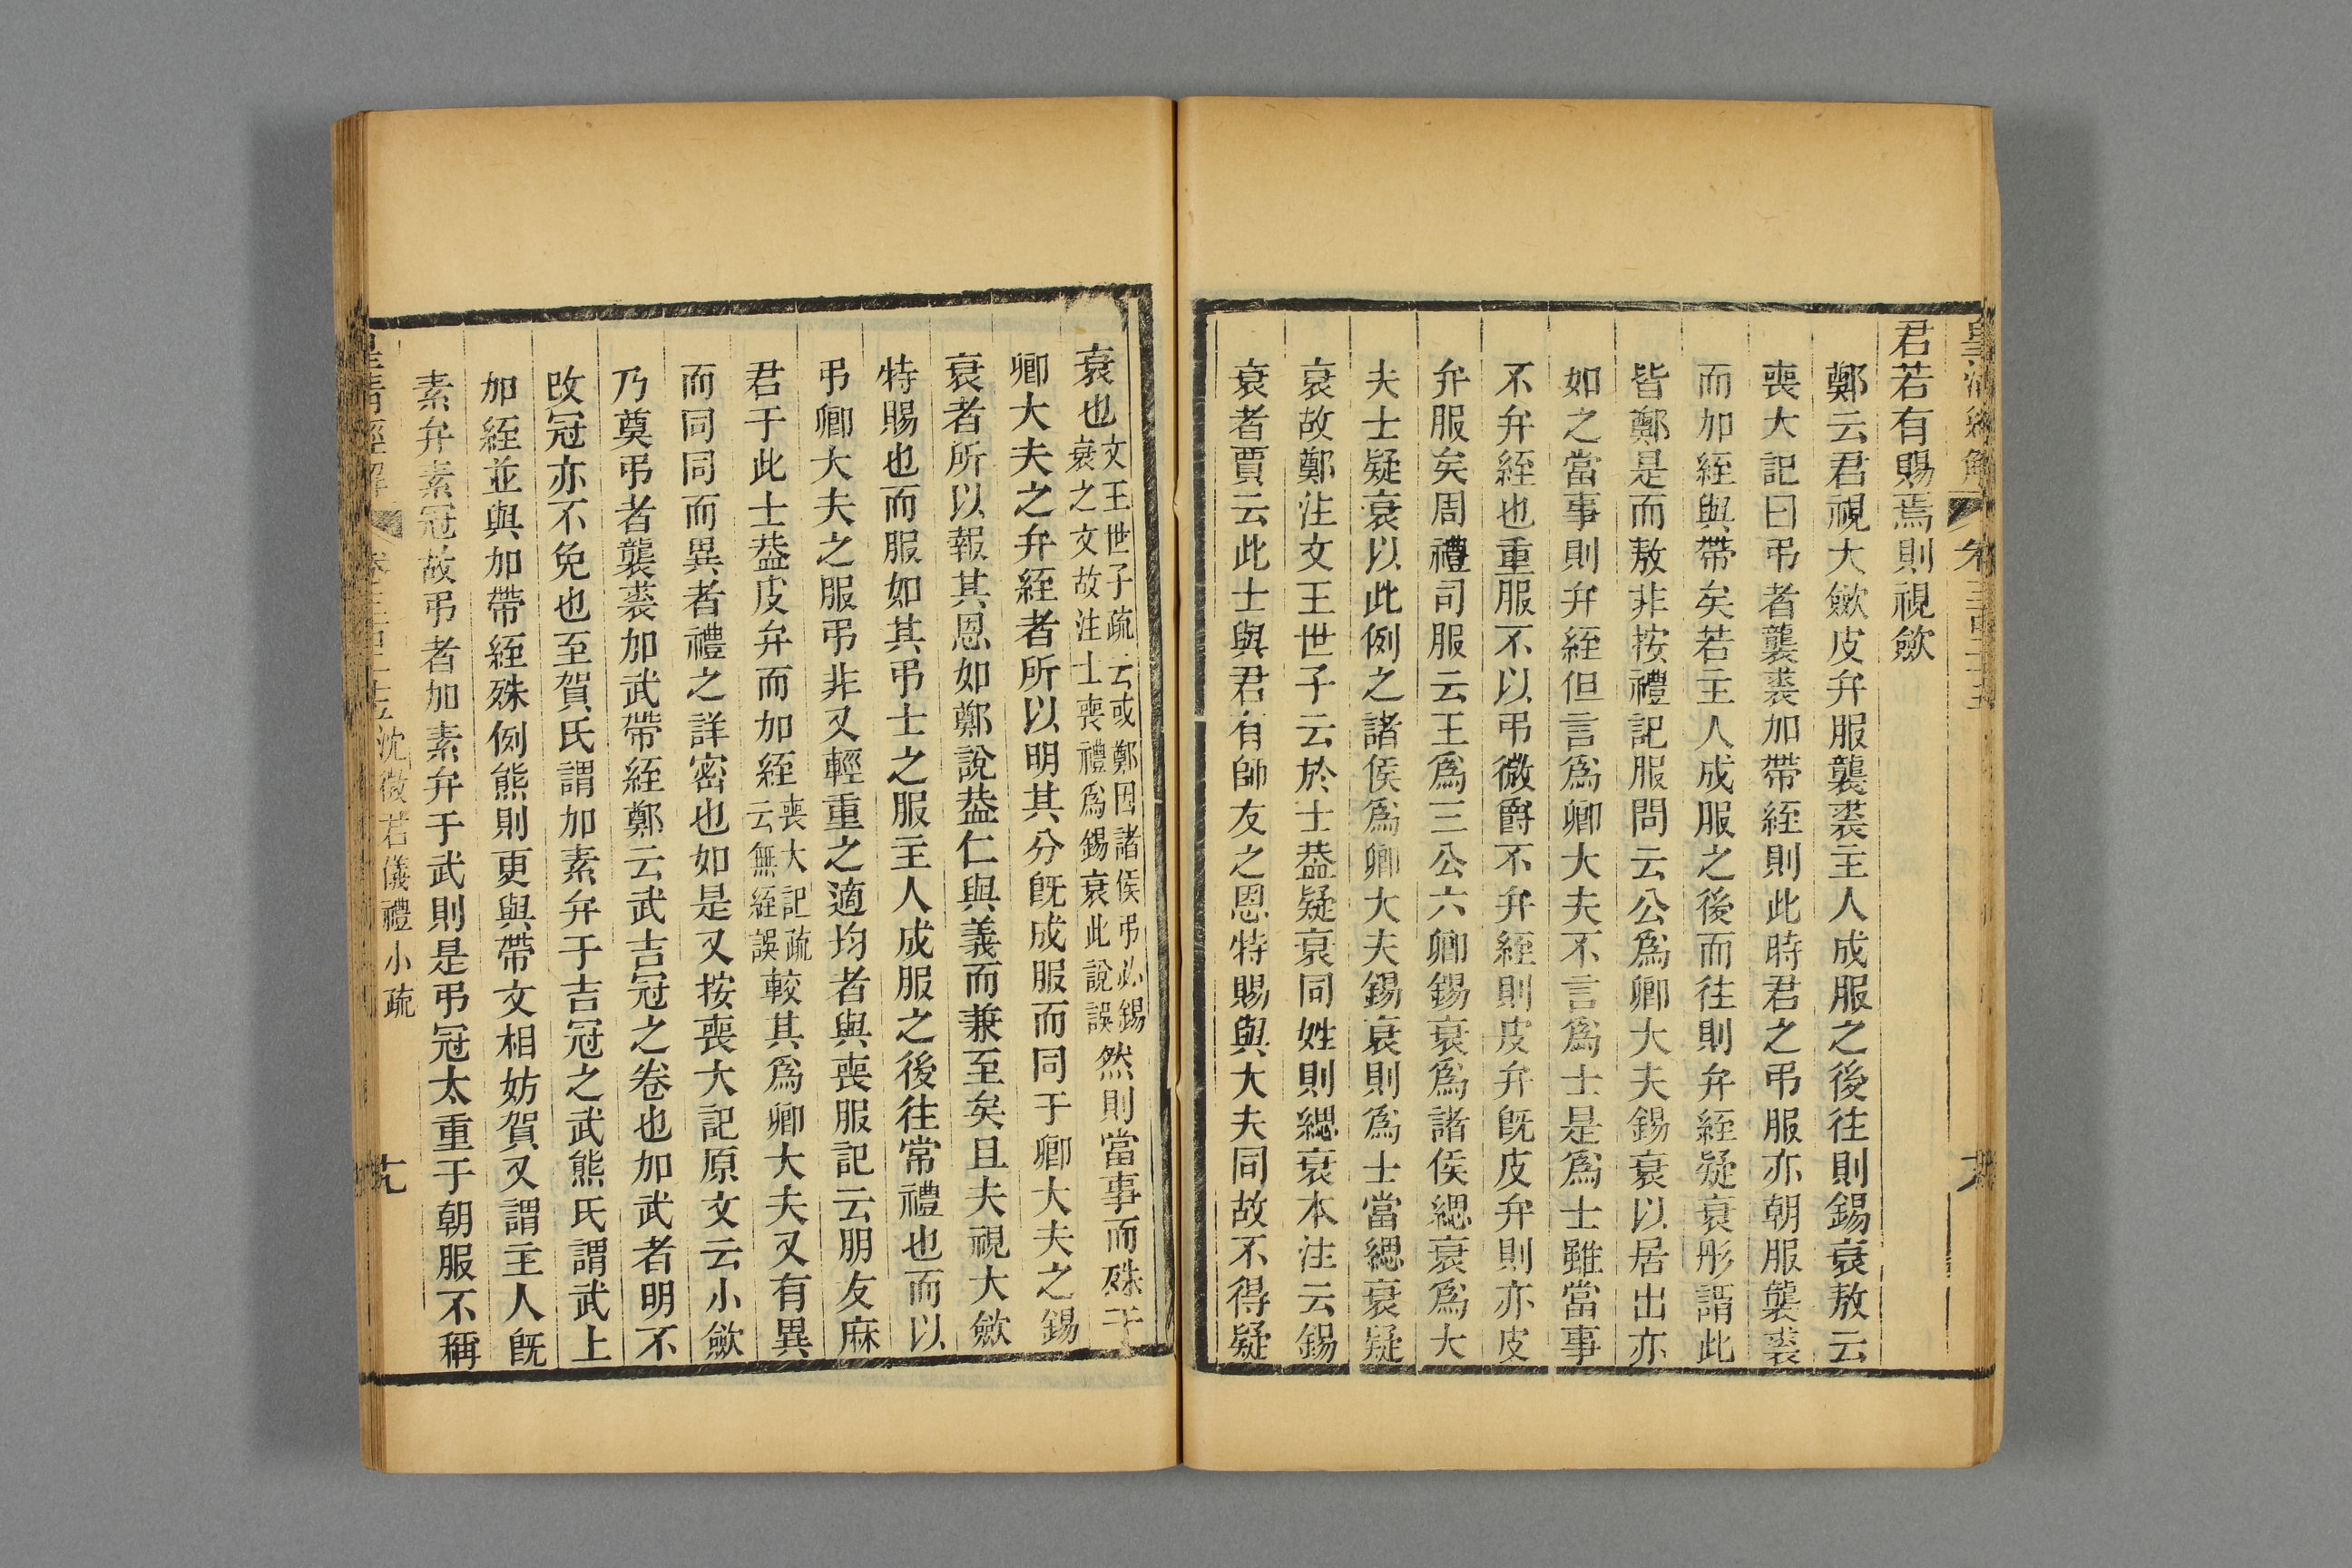 皇清經解
君若有賜焉則視斂
鄭云君視大斂皮弁服襲裘主人成服之後往則錫衰敖云
喪大記曰弔者襲裘加帶絰則此時君之弔服亦朝服襲裘
而加絰與帶矣若主人成服之後而往則弁絰疑衰彤謂此
皆鄭是而敖非按禮記服問云公爲卿大夫錫衰以居出亦
如之當事則弁絰但言爲卿大夫不言爲士是爲士雖當事
不弁絰也重服不以弔微爵不弁絰則皮弁旣皮弁則亦皮
弁服矣周禮司服云王爲三公六卿錫衰爲諸侯緦衰爲大
夫士疑衰以此例之諸侯爲卿大夫錫衰則爲士當緦衰疑
衰故鄭注文王世子云於士葢疑衰同姓則緦衰本注云錫
衰者賈云此士與君有師友之恩特賜與大夫同故不得疑
衰也文王世子疏云或鄭因諸侯弔必錫衰之文故注士喪禮爲錫衰此說誤然則當事而殊于
卿大夫之弁絰者所以明其分旣成服而同于卿大夫之錫
衰者所以報其恩如鄭說葢仁與義而兼至矣且夫視大斂
特賜也而服如其弔士之服主人成服之後往常禮也而以
弔卿大夫之服弔非又輕重之適均者與喪服記云朋友麻
君于此士葢皮弁而加絰喪大記疏云無絰誤較其爲卿大夫又有異
而同同而異者禮之詳密也如是又按喪大記原文云小斂
乃奠弔者襲裘加武帶絰鄭云武吉冠之卷也加武者明不
改冠亦不免也至賀氏謂加素弁于吉冠之武熊氏謂武上
加絰並與加帶絰殊例熊則更與帶文相妨賀又謂主人旣
素弁素冠故弔者加素弁于武則是弔冠太重于朝服不稱
皇清經解
沈徵君儀禮小疏